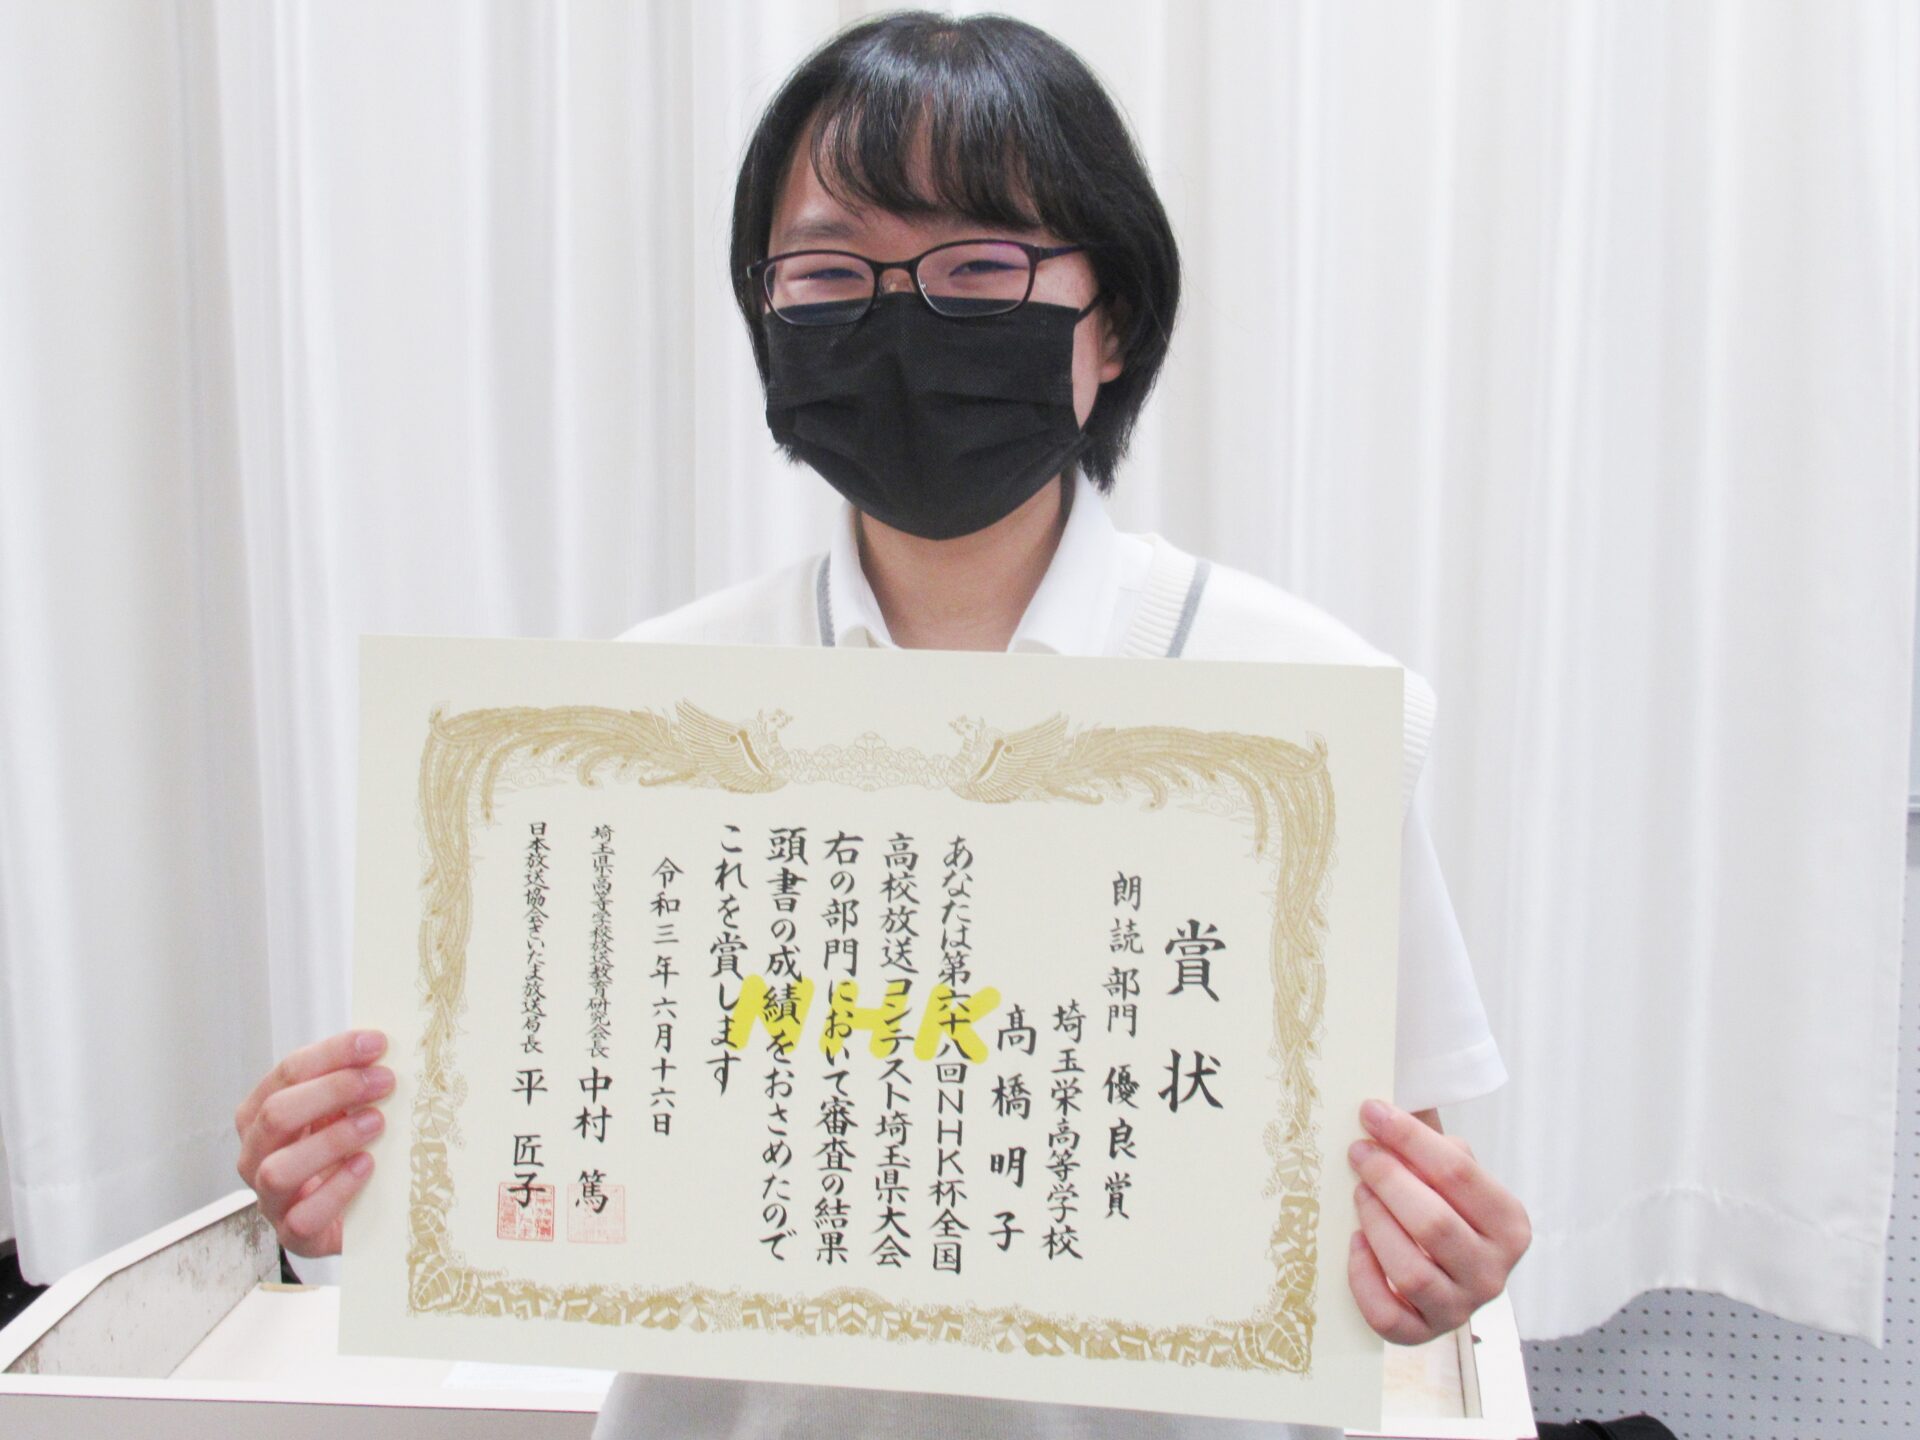 賞状
朗読部門 優良賞
埼玉栄高等学校
髙橋明子
あなたは第六十八回NHK杯全国
高校放送コンテスト埼玉県大会
右の部門において審査の結果
頭書の成績をおさめたので
これを賞します
令和三年六月十六日
埼玉県高等学校放送教育研究会長 中村 篤
日本放送協会さいたま放送局長 平 匠子
NHK